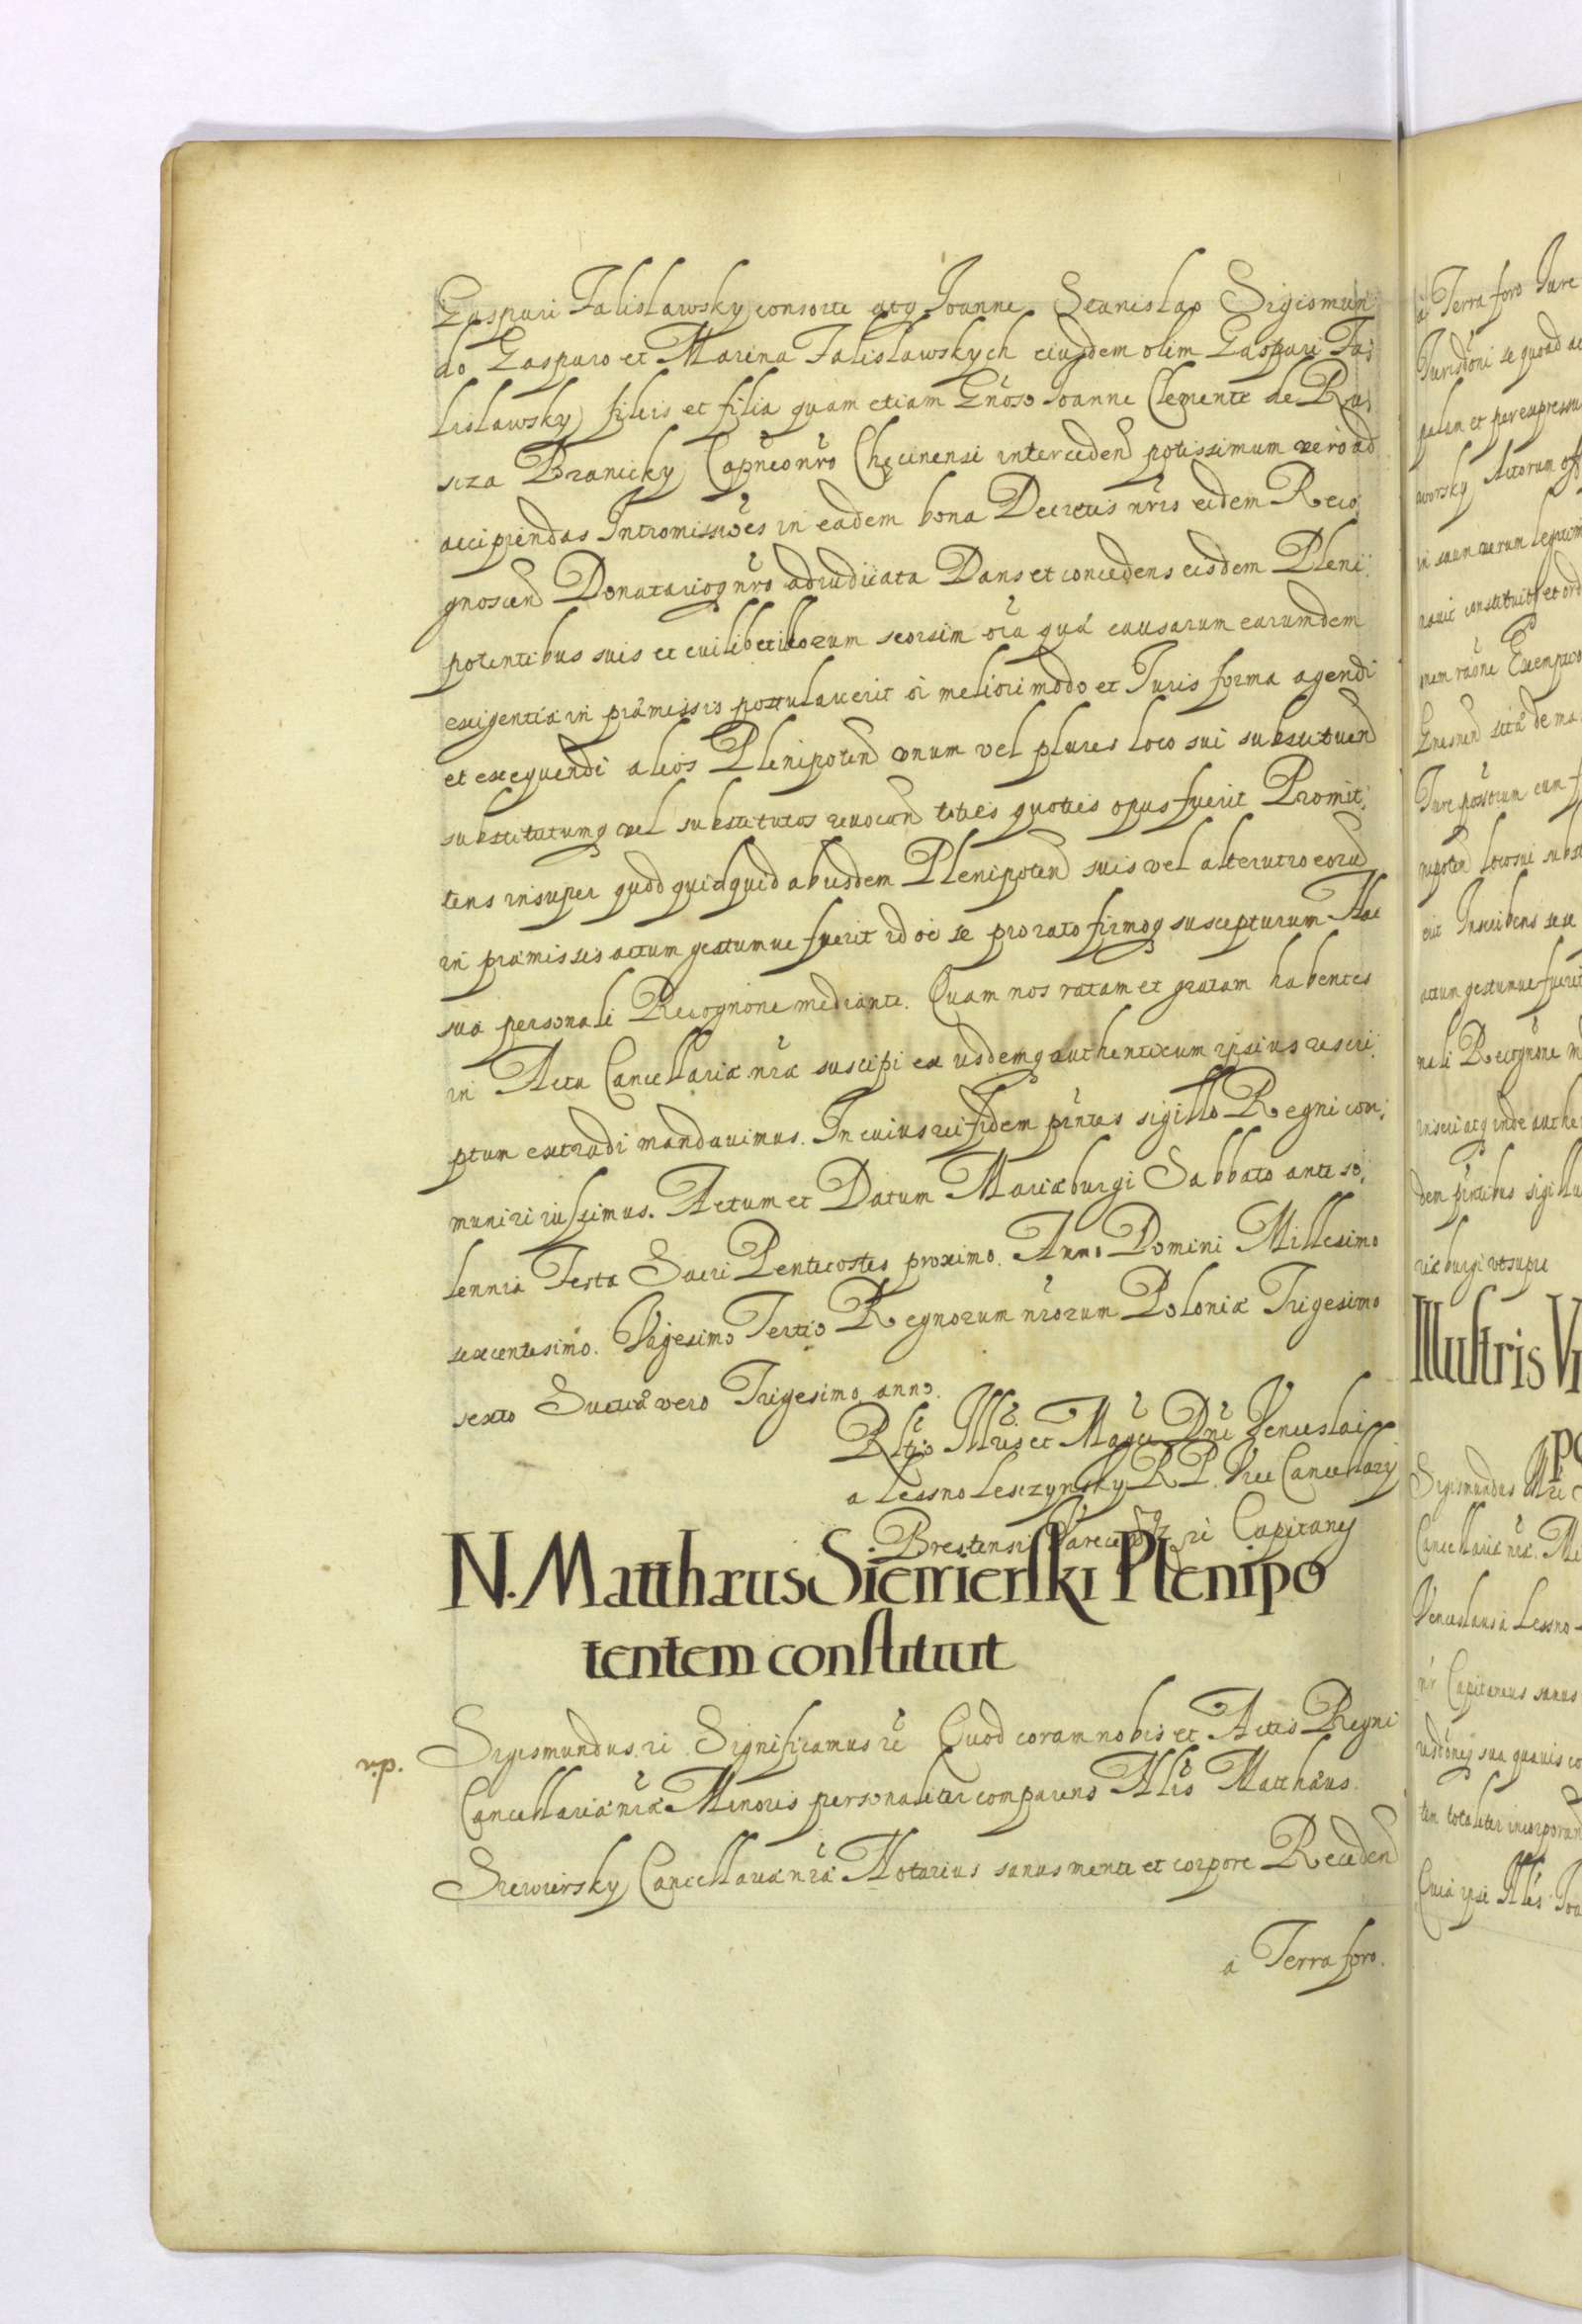 Gaspari Falislawsky consorte atq Joanne Stanislao Sigismun
do Gasparo et Marina Falislawskych eiusdem olim Gaspari Fa,
lislawsky filiis et filia quam etiam Gnoso Joanne Clemente de Ru,
siza Branicky Capneo nro Chęcinensi intercedend potissimum vero ad
accipiendas Intromissiões in eadem bona Decretis nris eidem Reco,
gnoscend Donatarioq nro adiudicata Dans et concedens eisdem Pleni,
potentibus suis et cuilibet illorum seorsim oia quæ causarum earumdem
exigentia in præmissis postulaverit oi meliori modo et Juris forma agendi
et exequendi alios Plenipotend unum vel plures loco sui substituend
substitutumq vel substitutos revocand toties quoties opus fuerit Promit,
tens insuper quod quidquid ab iisdem Plenipotend suis vel alterutro eorud
in præmissis actum gestumue fuerit id oe se pro rato firmoq suscepturum Hac
sua personali Recognõne mediante. Quam nos ratam et gratam habentes
in Acta Cancellariæ nræ suscipi ex iisdemq authenticum ipsius rescri,
ptum extradi mandavimus. In cuius rei fidem pñtes sigillo Regni com,
muniri iussimus. Actum et Datum Mariæburgi Sabbato ante so,
lennia Festa Sacri Pentecostes proximo. Anno Domini Millesimo
sexcentesimo. Vigesimo Tertio Regnorum nrorum Poloniæ Trigesimo
sexto Sueciæ vero Trigesimo anno.
Rltio Illris et Magci Dni Venceslai
a Lessno Lesczynsky RP. Vice Cancellarÿ
Brestensi Capitanÿ
N. Matthæus Siemierski Plenipo
tentem constituit
Sigismundus. ri Significamus rẽ Quod coram nobis et Actis Regni
Cancellariæ nræ Minoris personaliter comparens Nlis Matthæus
Siewiersky Cancellariæ nræ Notarius sanus mente et corpore Recedend
a Terra foro.
a Terra foro Jure
Jurisdõni se quoad ac
palam et per expressu
worsky Actorum off
constituit et ord
nem raõne
de ma
Jure
nipoten loco sui subst
Inscribens sese
actum gestumue fuerit
nali Recognõne m
atq inde authe
dem pñtibus sigillu
riæburgi vt supra
Illustris Vi
po
Sigismundus
Cancellariæ nræ. Mi
Venceslaus a Lessno
nr Capitaneus sanus
sua quavis co
tem totaliter incorporan
Quia ipse Nlis Joa